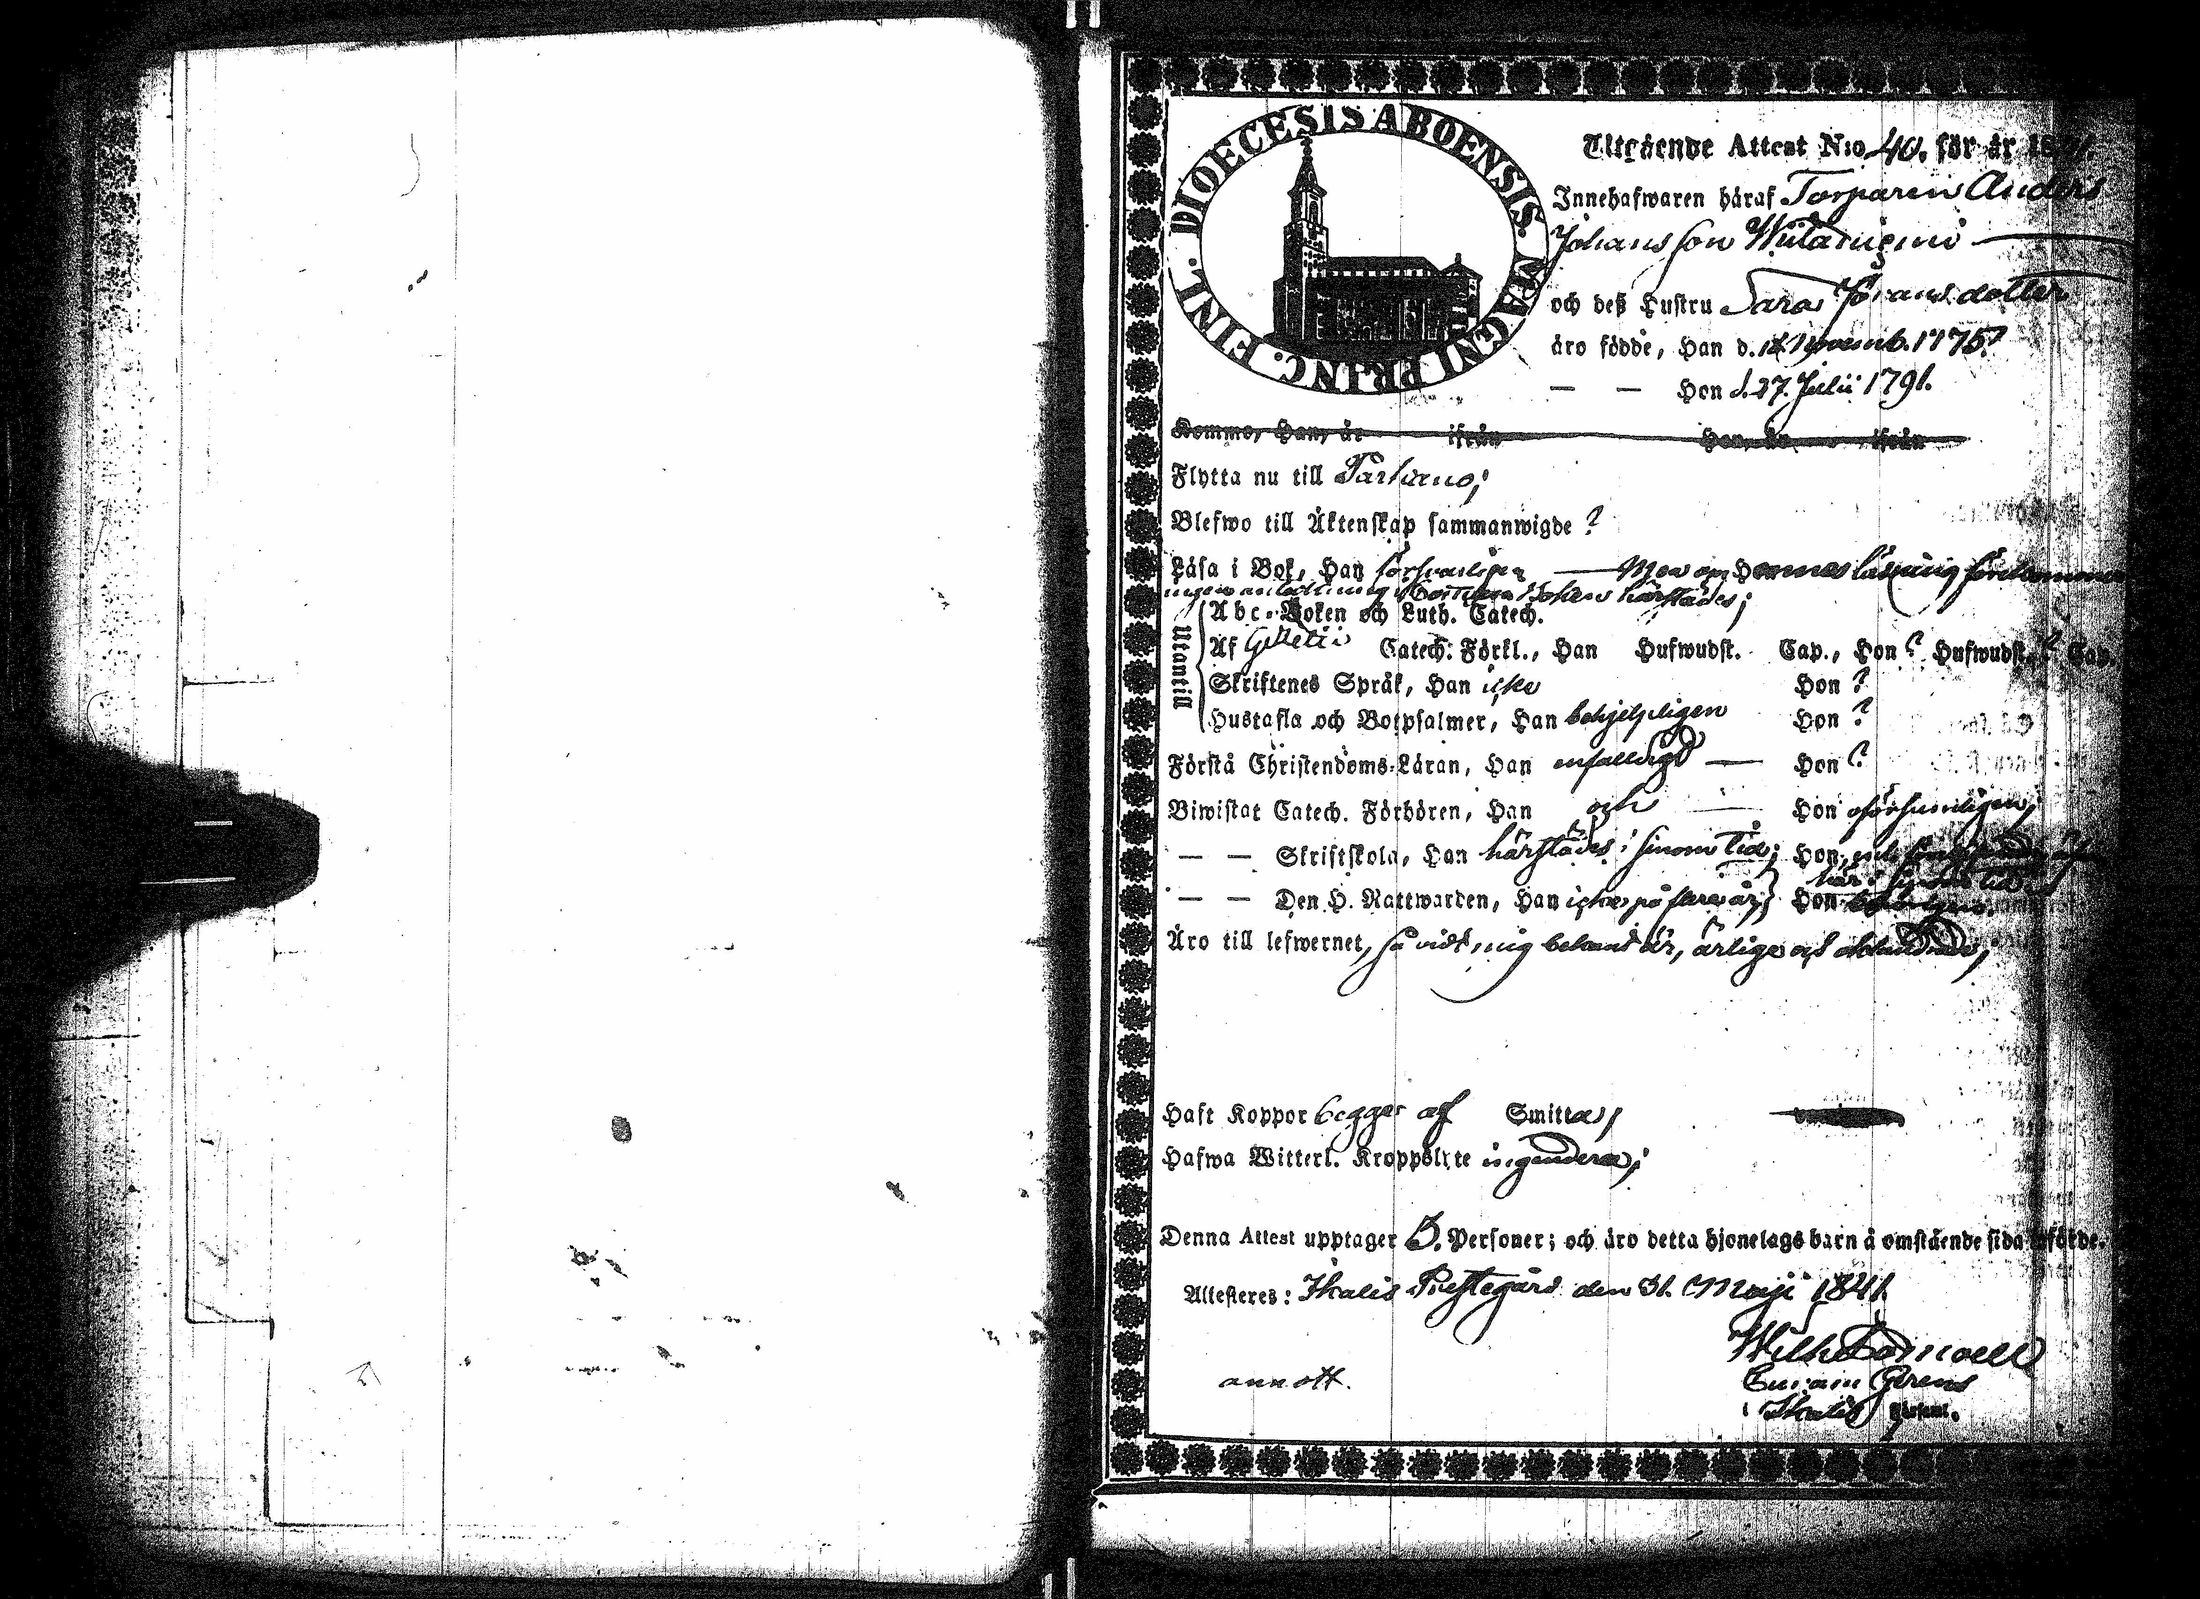 DIOECESIS ABOENSIS. MAGNI PRINC. FINL.
Utgående Attest N:o 40. för år 1841.
Innehafwaren häraf Torparen Anders
Johansson
och deß Hustru Sara Johansdotter
äro födde, Han d. 12 Novemb. 1775?
— — Hon d. 27. Julii 1791.
Komne, Han, år ifrån Hon, år ifrån
Flytta nu till Parkano;
Blefwo till Äktenskap sammanwigde ?
Läsa i Bok, Han försvarligen — Men om Hennes läsning förekommer
ingen anteckning i Communion Boken härstädes;
Utantill
Abc-Boken och Luth. Catech.
Af Gezelii Catech. Förkl., Han Hufwudst. Cap., Hon ? Hufwudst. ? Cap.
Skriftenes Språk, Han icke Hon ?
Hustafla och Botpsalmer, Han behjelpligen Hon ?
Förstå Christendoms-Läran, Han enfalldigt — Hon ?
Biwistat Catech. Förhören, Han och — Hon oförsumligen;
— — Skriftskola, Han härstädes i sinom tid; Hon,
här i sinom tid
— — Den H. Nattwarden, Han icke på flera år; Hon
Äro till lefwernet, så vidt mig bekant är, ärlige och oklandrade;
Haft Koppor begge af Smitta;
Hafwa Witterl. Kroppslyte ingendera;
Denna Attest upptager 5. Personer; och äro detta hjonelags barn å omstående sida införde.
Attesteres: Ikalis Prestegård den 31. Maji 1841.
Wilh.
Grens
i Ikalis Församl.
annott.